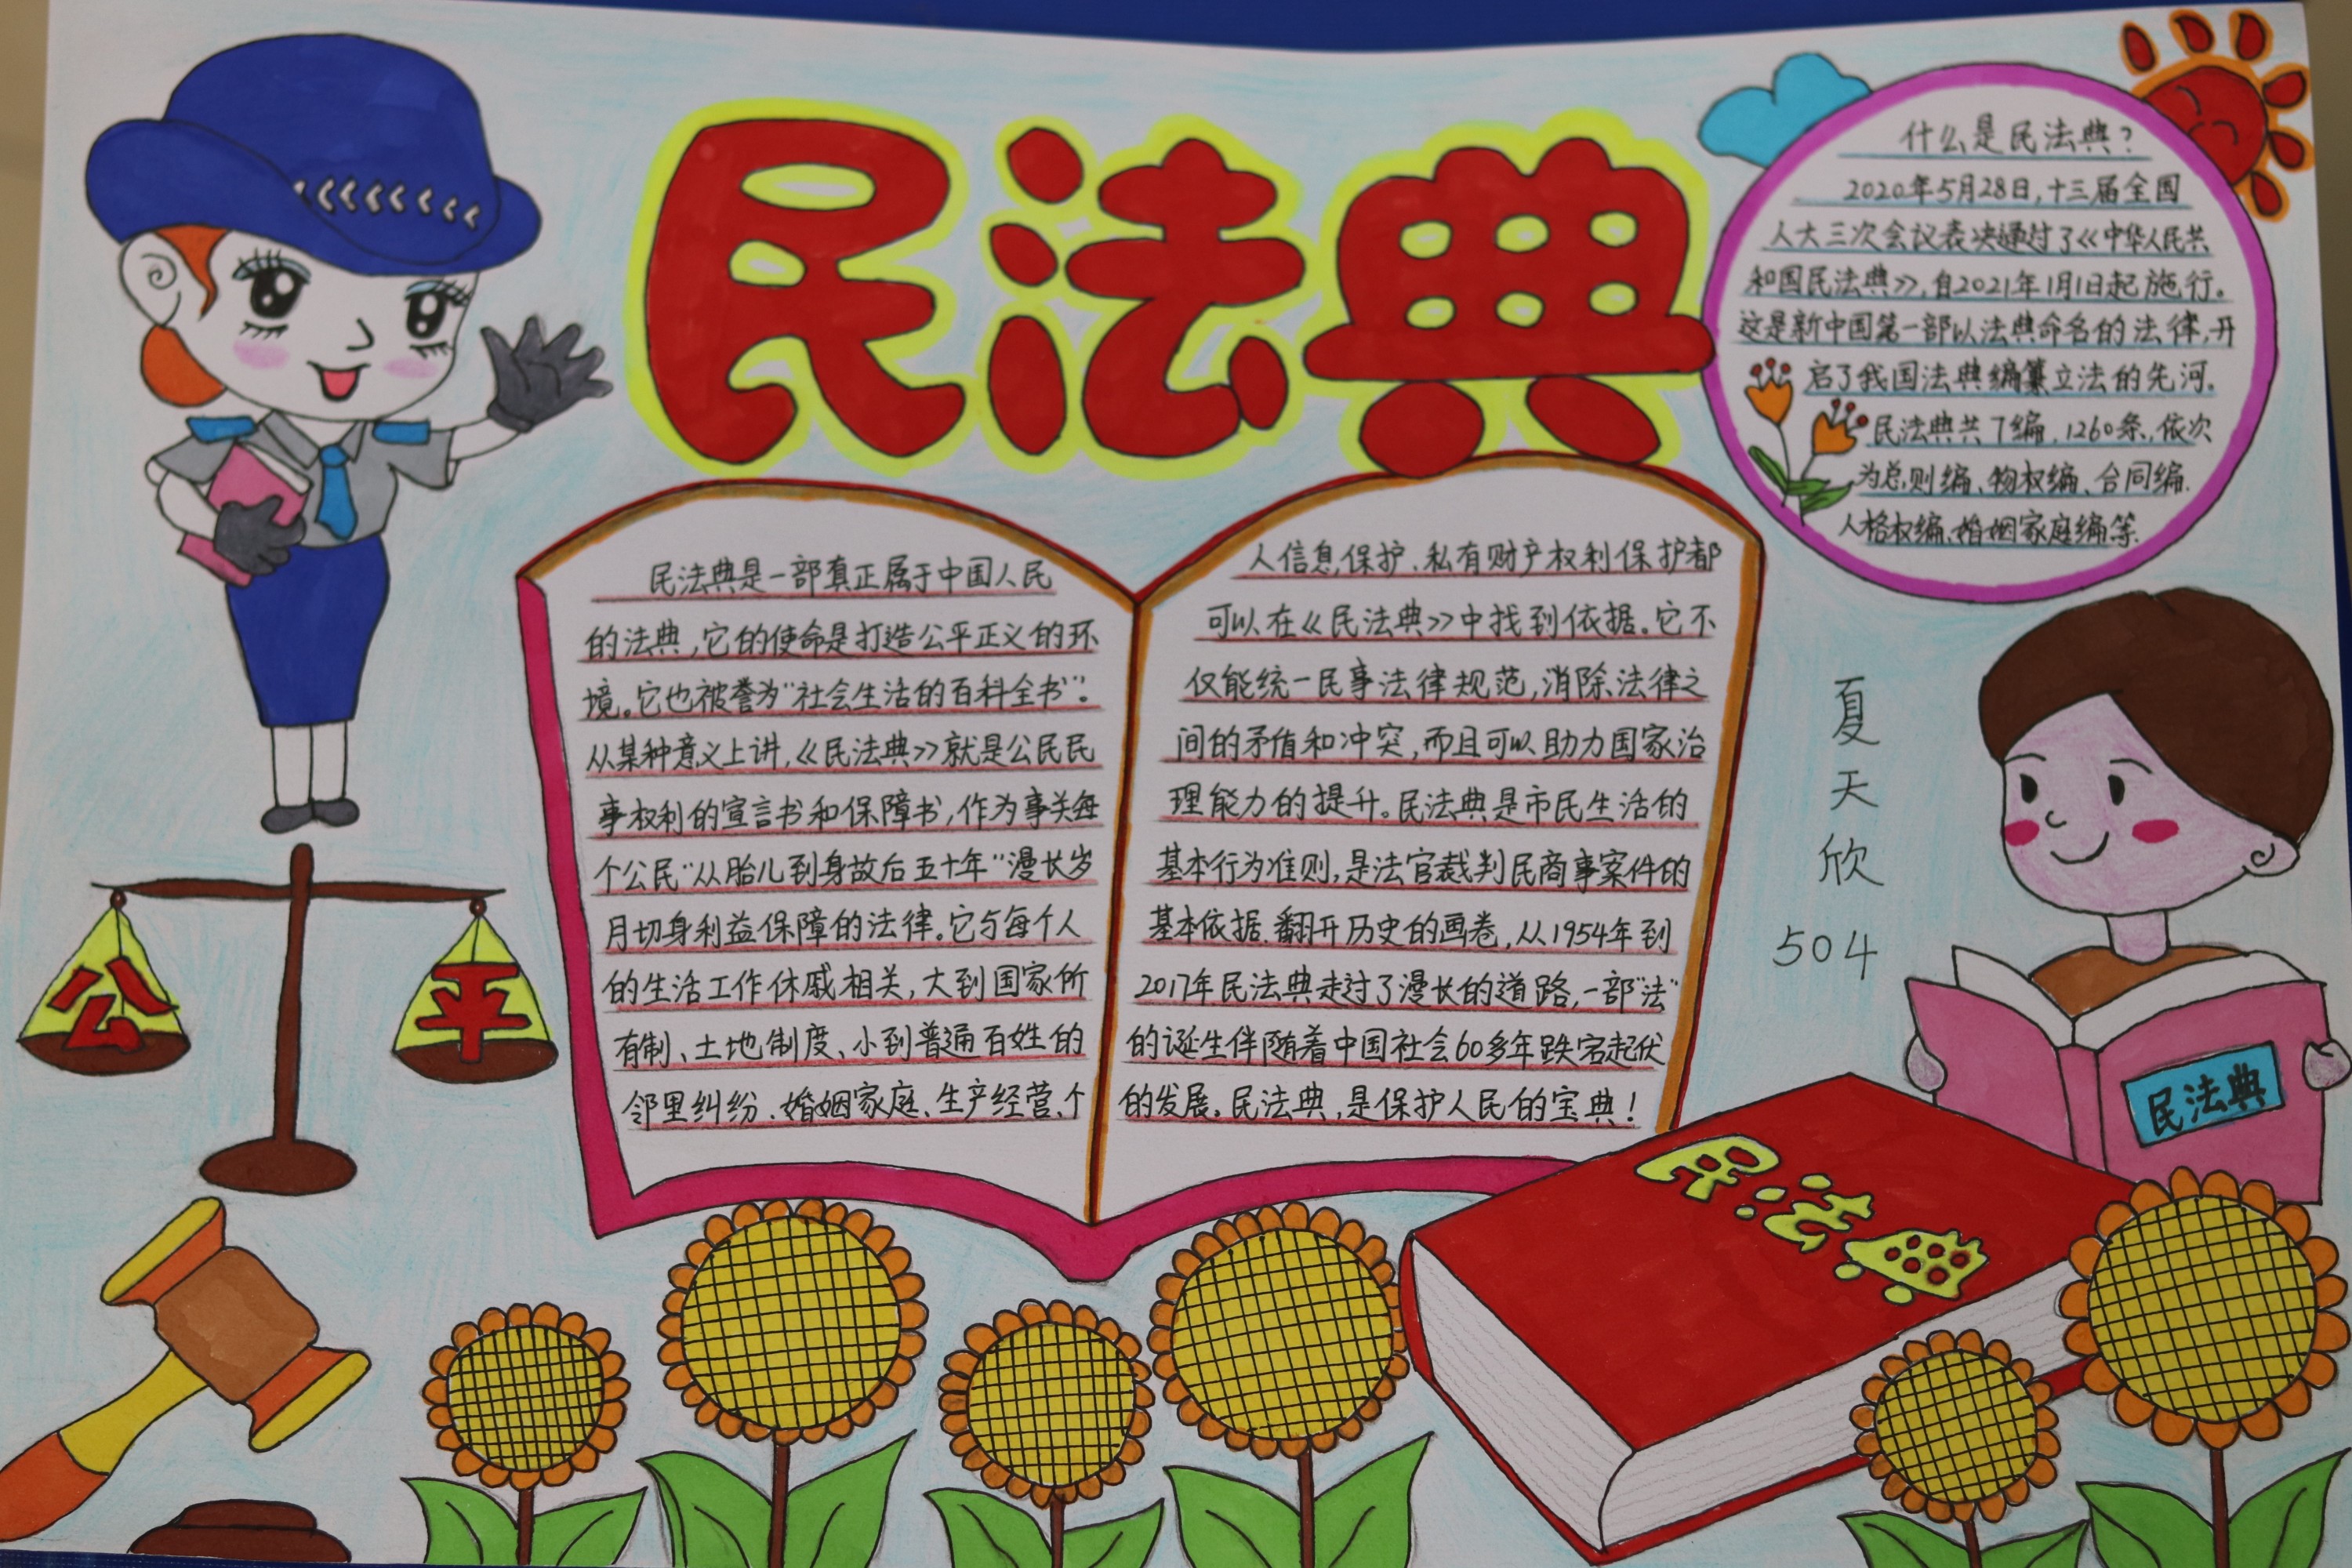 民法典
什么是民法典？
2020年5月28日,十三届全国
人大三次会议表决通过了《中华人民共
和国民法典》,自2021年1月1日起施行。
这是新中国第一部以法典命名的法律,开
启了我国法典编纂立法的先河。
民法典共7编,1260条,依次
为总则编、物权编、合同编、
人格权编、婚姻家庭编等.
民法典是一部真正属于中国人民
的法典,它的使命是打造公平正义的环
境。它也被誉为“社会生活的百科全书”。
从某种意义上讲,《民法典》就是公民民
事权利的宣言书和保障书,作为事关每
个公民“从胎儿到身故后五十年”漫长岁
月切身利益保障的法律。它与每个人
的生活工作休戚相关,大到国家所
有制、土地制度、小到普通百姓的
邻里纠纷、婚姻家庭、生产经营、个
人信息保护、私有财产权利保护都
可以在《民法典》中找到依据。它不
仅能统一民事法律规范,消除法律之
间的矛盾和冲突,而且可以助力国家治
理能力的提升。民法典是市民生活的
基本行为准则,是法官裁判民商事案件的
基本依据.翻开历史的画卷,从1954年到
2017年民法典走过了漫长的道路,一部“法”
的诞生伴随着中国社会60多年跌宕起伏
的发展。民法典,是保护人民的宝典！
夏天欣
504
公
平
民法典
民法典